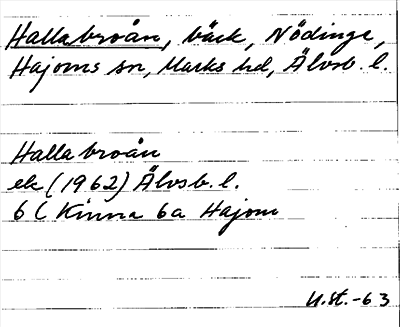 Hallabroån, bäck, Nödinge,
Hajoms sn, Marks hd, Älvsb. l.
Hallabroån
ek (1962) Älvsb. l.
6 C Kinna 6a Hajom
U.st.-63